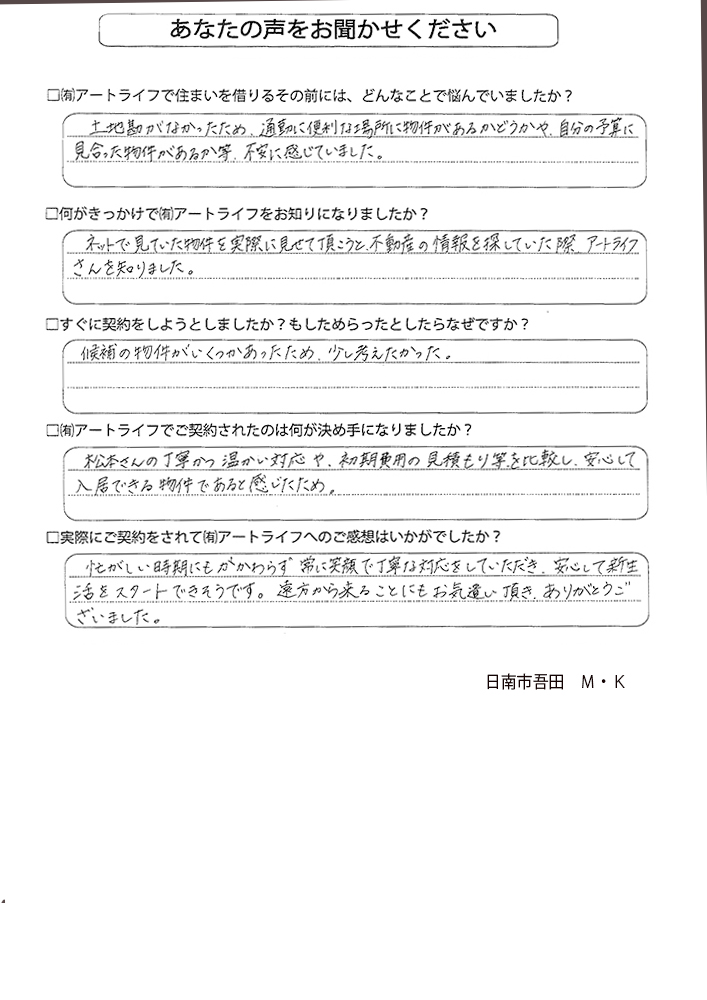 あなたの声をお聞かせください
□㈲アートライフで住まいを借りるその前には、どんなことで悩んでいましたか？
土地勘がなかったため、通勤に便利な場所に物件があるかどうかや、自分の予算に
見合った物件があるか等、不安に感じていました。
□何がきっかけで㈲アートライフをお知りになりましたか？
ネットで見ていた物件を実際に見せて頂こうと、不動産の情報を探していた際、アートライフ
さんを知りました。
□すぐに契約をしようとしましたか？もしためらったとしたらなぜですか？
候補の物件がいくつかあったため、少し考えたかった。
□㈲アートライフでご契約されたのは何が決め手になりましたか？
松本さんの丁寧かつ温かい対応や、初期費用の見積もり等を比較し、安心して
入居できる物件であると感じたため。
□実際にご契約をされて㈲アートライフへのご感想はいかがでしたか？
忙がしい時期にもかかわらず常に笑顔で丁寧な対応をしていただき、安心して新生
活をスタートできそうです。遠方から来ることにもお気遣い頂き、ありがとうご
ざいました。
日南市吾田　M・K